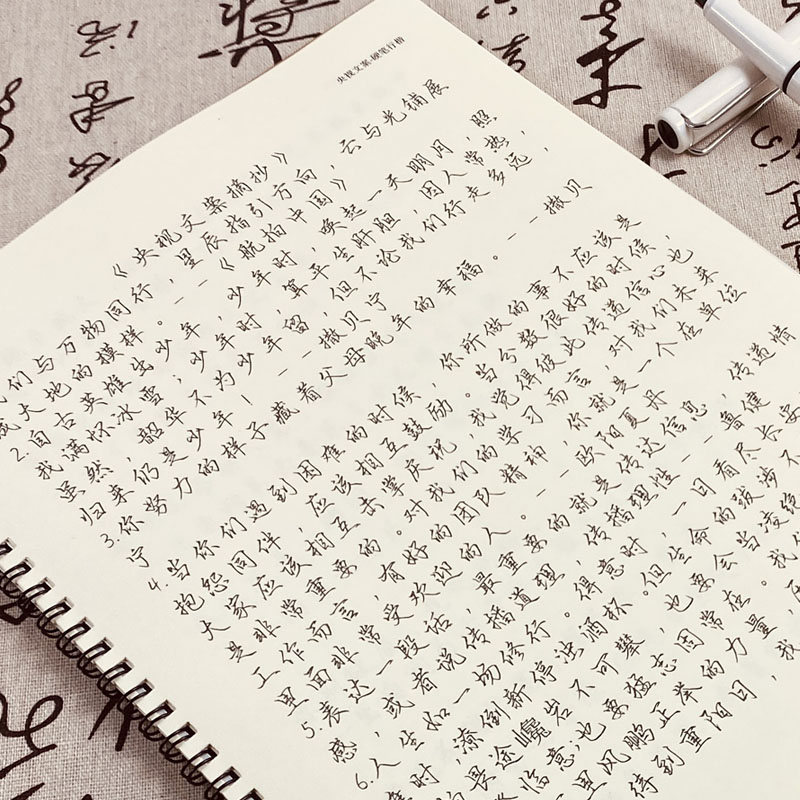 央视文案·硬笔行楷
《央视文案摘抄》
们与万物同行，星辰指引方向，云与光铺展
成大地的模样。--《航拍中国》
2.自古英雄出少年，少年时，唤起一天明月，照
我满怀冰雪；少年时，算平生肝胆，因人常热，
虽然，韶华不为少年留，但不论我们行走多远，
归来仍是少年！--撒贝宁
3.你努力的样子藏着父母晚年的幸福。--撒贝
宁
4.当你们遇到困难的时候，你所做的事不应该是
抱怨同伴，应该相互鼓励。当分数很好的时候，
大家应该相互击掌庆祝，我觉得彼此传递信心也
是非常重要的。对我们的学习而言，对我们未来
工作而言，有好的团队精神，你就是一个在单位
里面非常受欢迎的人。--欧阳夏丹
5.表达一段话，最重要的就是传达信息，传递情
感，或者说传播道理，传播理性--鲁健
6.人生如一场修行。得意时，一日看尽长安
时，潦倒新停浊酒杯。但生命的跋涉不
畏途巉岩不可攀，也要会当凌绝
临意；也要猛志固常在。我
里风鹏正举的力量，
得到重阳日，我